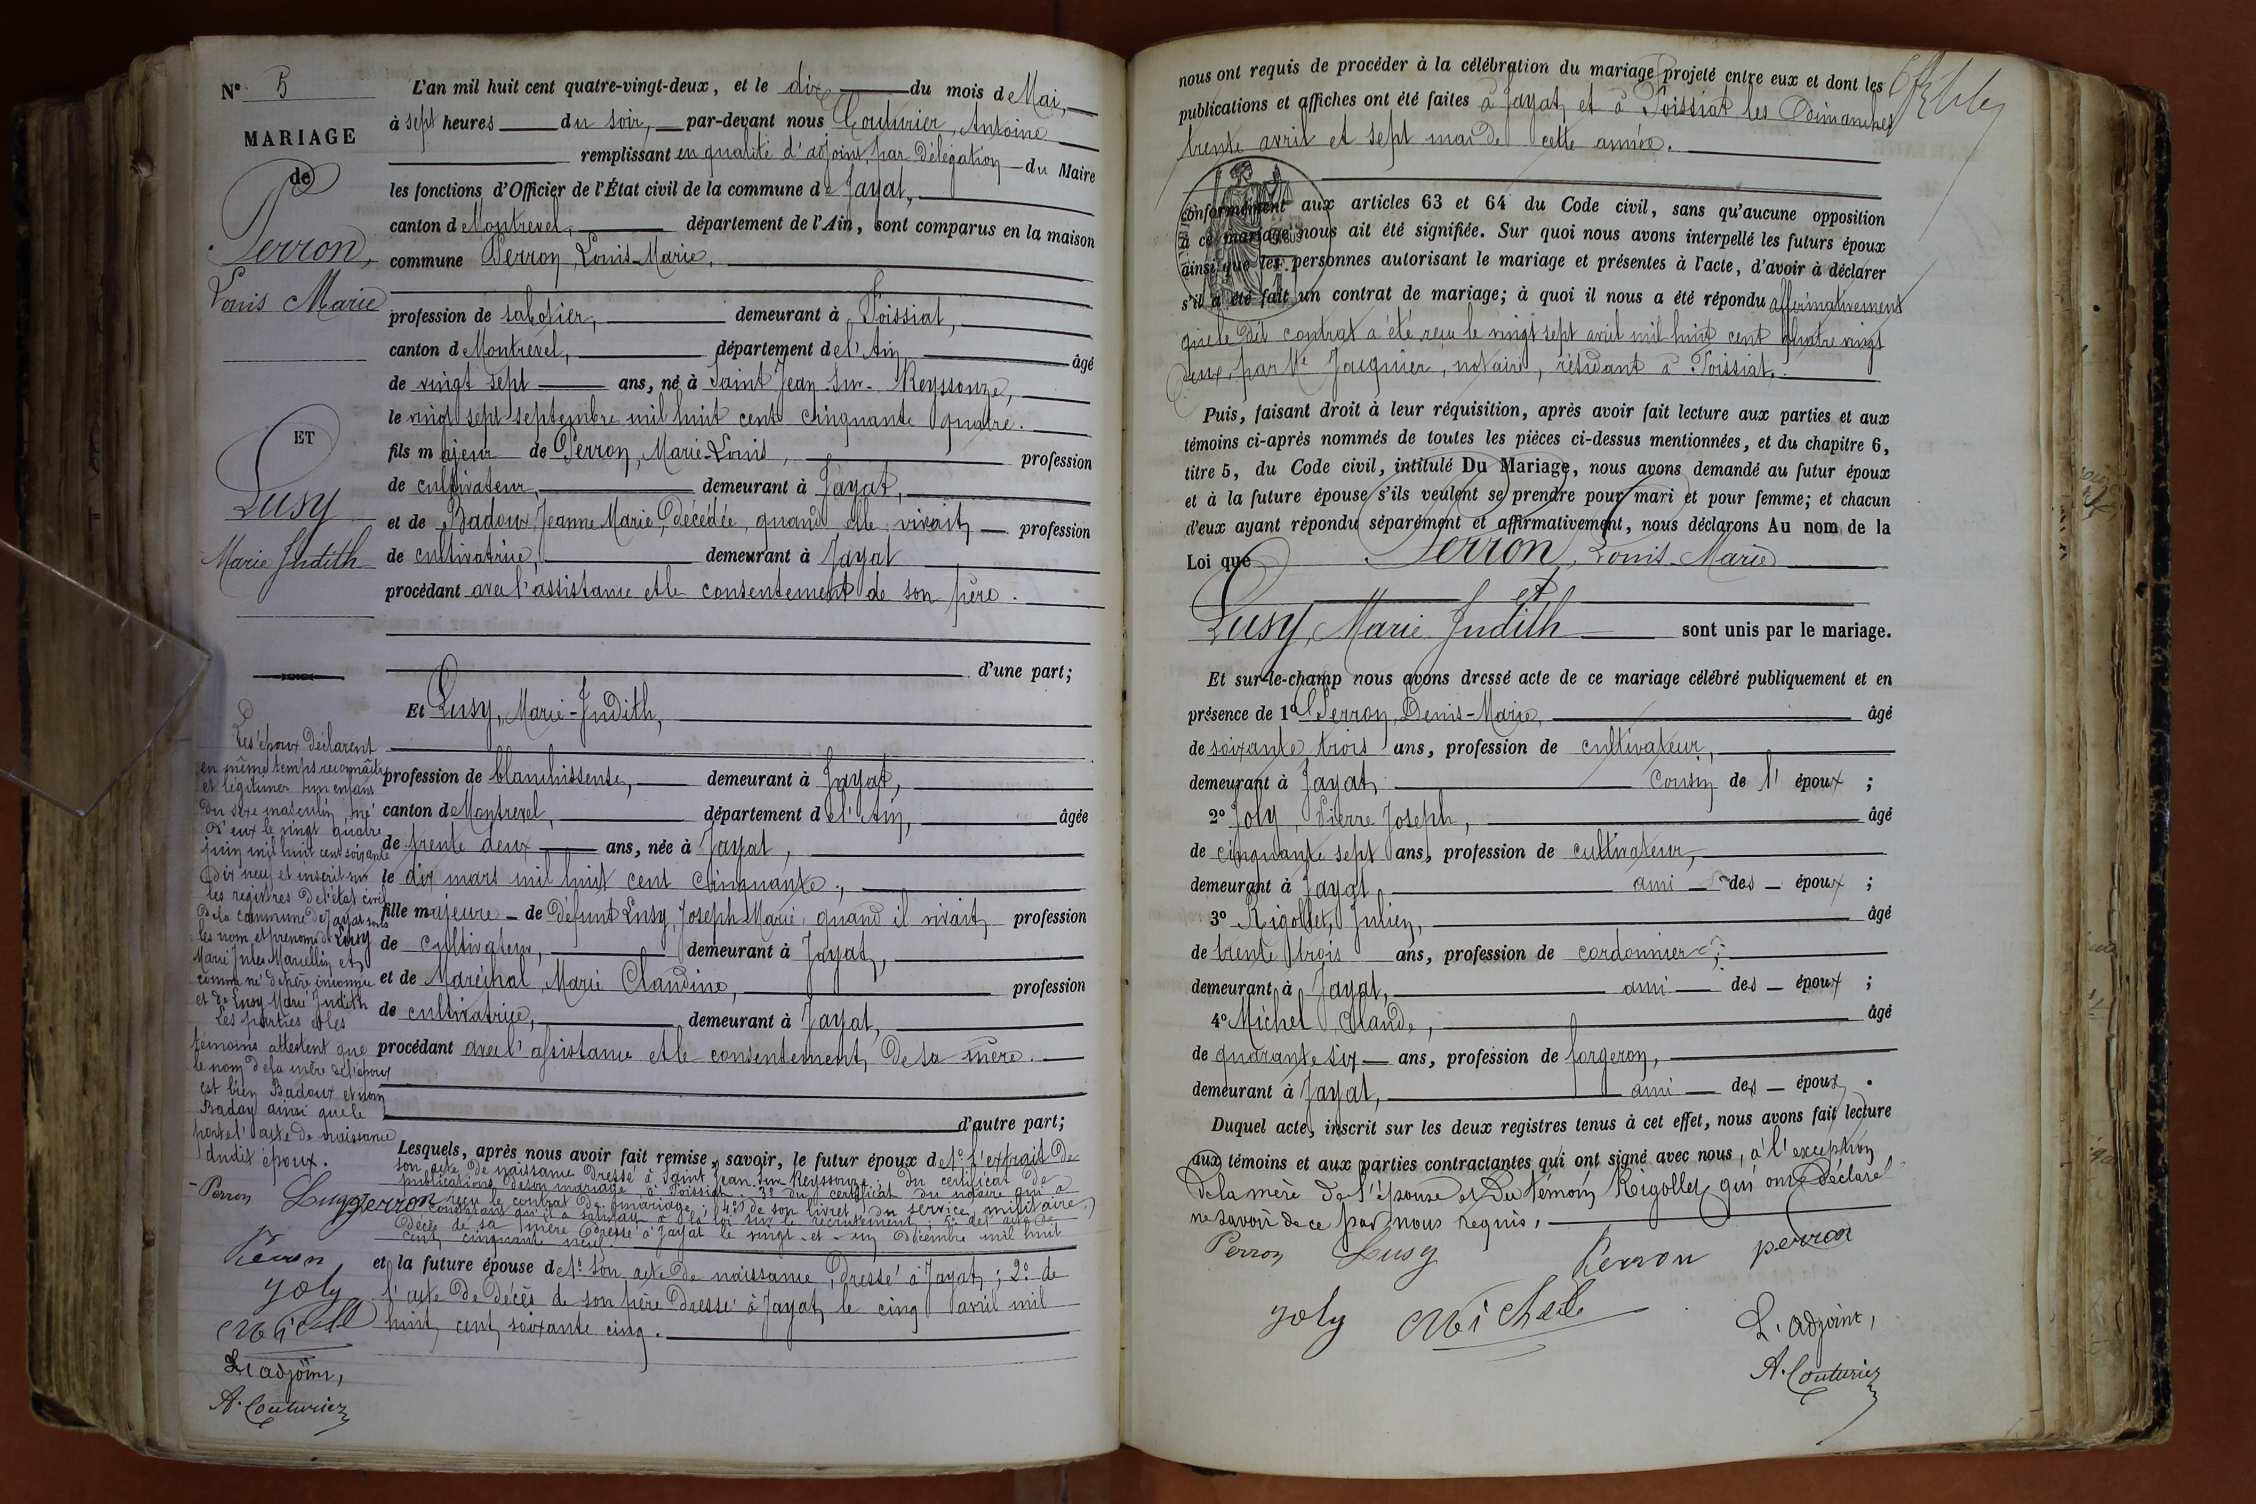 N° 5
MARIAGE
de
Perron,
Louis Marie
ET
Lusy
Marie Judith
Les époux déclarent
en même temps reconnaître
et légitimer un enfant
du sexe masculin, né
d'eux le vingt quatre
juin mil huit cent soixante
dix neuf et inscrit sur
les registres de l'état civil
de la commune de Jayat sous
les nom et prénoms de Lusy
Marie Jules Marcellin et
comme né de père inconnu
et de Lusy Marie Judith
Les parties et les
témoins attestent que
le nom de la mère de l'époux
est bien Badoux et non
Baday ainsi que le
porte l'acte de naissance
dudit époux.
Perron Lusy perron
Perron
Joly
Michel
L'adjoint,
A. Couturier
L'an mil huit cent quatre-vingt-deux, et le dix du mois de Mai,
à sept heures du soir, par-devant nous Couturier, Antoine
remplissant en qualité d'adjoint, par délégation du Maire
les fonctions d'Officier de l'État civil de la commune de Jayat,
canton d Montrevel, département de l'Ain, sont comparus en la maison
commune Perron, Louis-Marie,
profession de sabotier, demeurant à Foissiat,
canton d Montrevel, département de l'Ain, âgé
de vingt sept ans, né à Saint Jean-sur-Reyssouze,
le vingt sept septembre mil huit cent cinquante quatre.
fils majeur de Perron, Marie-Louis, profession
de cultivateur, demeurant à Jayat,
et de Badoux, Jeanne Marie, décédée, quand elle vivait, profession
de cultivatrice, demeurant à Jayat
procédant avec l'assistance et le consentement de son père.
d'une part;
Et Lusy, Marie-Judith,
profession de blanchisseuse, demeurant à Jayat,
canton de Montrevel, département de l'Ain, âgée
de trente deux ans, née à Jayat,
le dix mars mil huit cent cinquante,
fille majeure de défunt Lusy, Joseph-Marie, quand il vivait, profession
de cultivateur, demeurant à Jayat,
et de Maréchal Marie Claudine, profession
de cultivatrice, demeurant à Jayat,
procédant avec l'assistance et le consentement de sa mère.
d'autre part;
Lesquels, après nous avoir fait remise, savoir, le futur époux de 1° l'extrait de
son acte de naissance dressé à Saint Jean-sur-Reyssouze; du certificat de
publications de son mariage, à Foissiat; 3° du certificat du notaire qui a
reçu le contrat de mariage; 4° de son livret du service militaire
constatant qu'il a satisfait à la loi sur le recrutement; 5° de l'acte de
décès de sa mère dressé à Jayat le vingt-et-un décembre mil huit
cent cinquante neuf.
et la future épouse de 1° son acte de naissance, dressé à Jayat; 2° de
l'acte de décès de son père dressé à Jayat le cinq avril mil
huit cent soixante cinq.
nous ont requis de procéder à la célébration du mariage projeté entre eux et dont les
publications et affiches ont été faites à Jayat et à Foissiat les dimanches
trente avril et sept mai de cette année.
conformément aux articles 63 et 64 du Code civil, sans qu'aucune opposition
à ce mariage nous ait été signifiée. Sur quoi nous avons interpellé les futurs époux
ainsi que les personnes autorisant le mariage et présentes à l'acte, d'avoir à déclarer
s'il a été fait un contrat de mariage; à quoi il nous a été répondu affirmativement
que le dit contrat a été reçu le vingt sept avril mil huit cent quatre vingt
deux, par Me notaire, résidant à Foissiat.
Puis, faisant droit à leur réquisition, après avoir fait lecture aux parties et aux
témoins ci-après nommés de toutes les pièces ci-dessus mentionnées, et du chapitre 6,
titre 5, du Code civil, intitulé Du Mariage, nous avons demandé au futur époux
et à la future épouse s'ils veulent se prendre pour mari et pour femme; et chacun
d'eux ayant répondu séparément et affirmativement, nous déclarons Au nom de la
Loi que Perron, Louis-Marie
et
Lusy, Marie Judith sont unis par le mariage.
Et sur-le-champ nous avons dressé acte de ce mariage célébré publiquement et en
présence de 1° Perron, Denis-Marie, âgé
de soixante trois ans, profession de cultivateur,
demeurant à Jayat, cousin de l' époux ;
2° Joly, Pierre Joseph, âgé
de cinquante sept ans, profession de cultivateur,
demeurant à Jayat, ami des époux ;
3° Rigollet, Julien, âgé
de trente trois ans, profession de cordonnier;
demeurant à Jayat, ami des époux ;
4° Michel Claude, âgé
de quarante six ans, profession de forgeron,
demeurant à Jayat, ami des époux.
Duquel acte, inscrit sur les deux registres tenus à cet effet, nous avons fait lecture
aux témoins et aux parties contractantes qui ont signé avec nous, à l'exception
de la mère de l'épouse et du témoin Rigollet qui ont déclaré
ne savoir de ce par nous requis.
Perron Lusy Perron perron
Joly Michel
L'adjoint,
A. Couturier